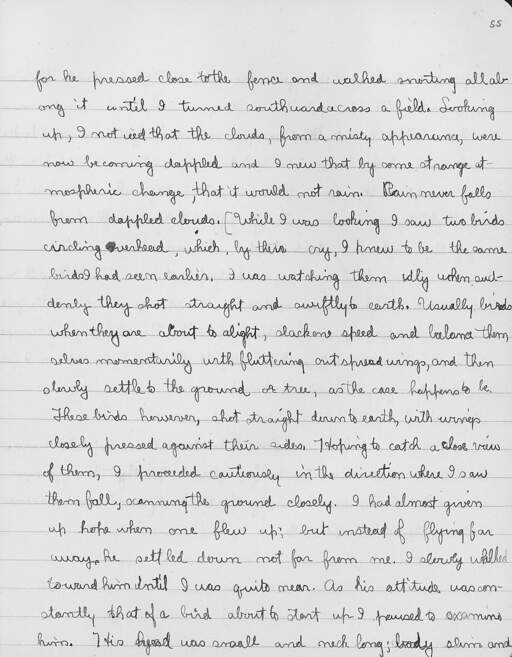 55
for he pressed close to the fence and walked snorting all al-
ong it until I turned southward across a field. Looking
up, I noticed that the clouds, from a misty appearance, were
now becoming dappled and I knew that by some strange at-
mospheric change, that it would not rain. Rain never falls
from dappled clouds. [While I was looking I saw two birds
circling overhead, which, by their cry, I knew to be the same
birds I had seen earlier. I was watching them idly when sud-
denly they shot straight and swiftly to earth. Usually birds
when they are about to alight, slacken speed and balance them
selves momentarily with fluttering outspread wings, and then
slowly settle to the ground or tree, as the case happens to be.
These birds however, shot straight down to earth, with wings
closely pressed against their sides. Hoping to catch a close view
of them, I proceeded cautiously in the direction where I saw
them fall, scanning the ground closely. I had almost given
up hope when one flew up; but instead of flying far
away, he settled down not far from me. I slowly walked
toward him until I was quite near. As his attitude was con-
stantly that of a bird about to start up I paused to examine
him. His head was small and neck long; body slim and